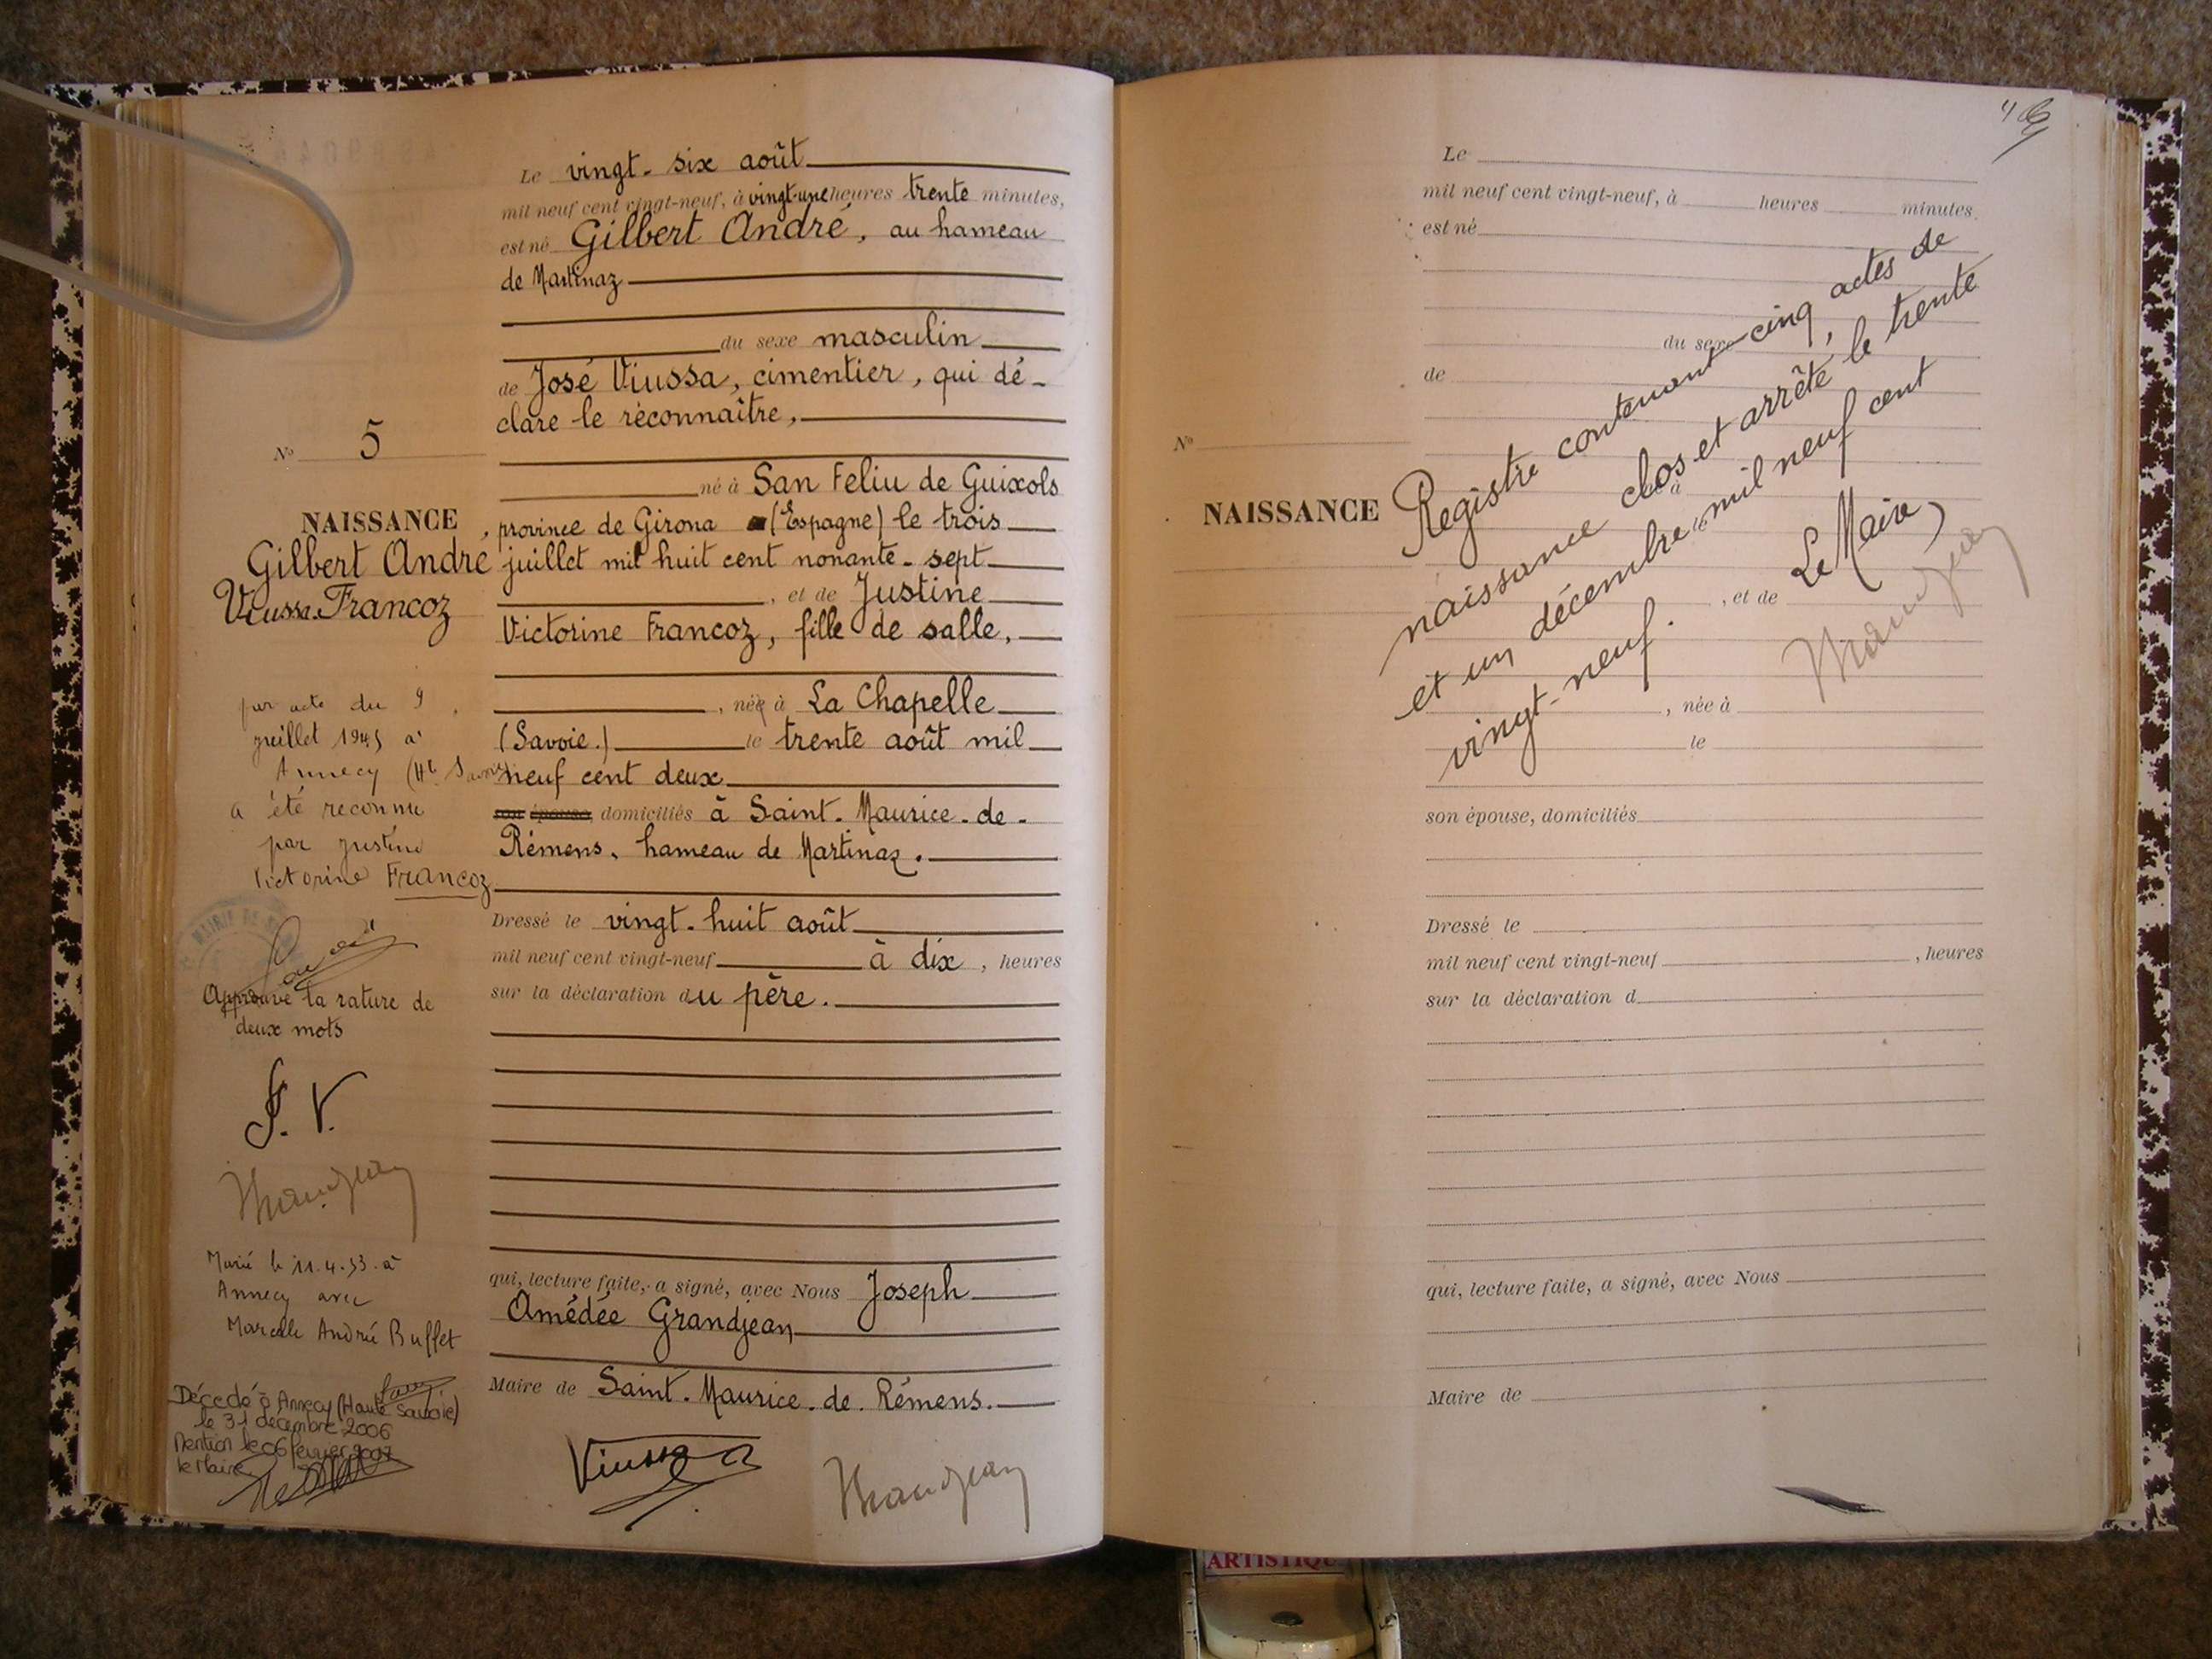 Le vingt-six août
mil neuf cent vingt-neuf, à vingt-une heures trente minutes,
est né Gilbert André, au hameau
de Martinaz
du sexe masculin
de José Viussa, cimentier, qui dé-
clare le réconnaître,
né à San Feliu de Guixols
province de Girona (Espagne) le trois
juillet mil huit cent nonante-sept
, et de Justine
Victorine Francoz, fille de salle,
, née à La Chapelle
(Savoie) le trente août mil
neuf cent deux
son épouse domiciliés à Saint-Maurice-de-
Rémens, hameau de Martinaz.
Dressé le vingt-huit août
mil neuf cent vingt-neuf à dix, heures
sur la déclaration du père.
qui, lecture faite, a signé, avec Nous Joseph
Amédée Grandjean
Maire de Saint-Maurice-de-Rémens.
Viussa
Grandjean
No 5
NAISSANCE
Gilbert André
Viussa-Francoz
par acte du 9
juillet 1945 à
Annecy (Hte Savoie)
a été reconnu
par Justine
Victorine Francoz
MAIRIE DE
Approuvé la rature de
deux mots
J. V.
Grandjean
Marié le 11.4.53 à
Annecy avec
Marcelle Andrée Buffet
Décedé à Annecy (Haute Savoie)
le 31 décembre 2006
Mention le 06 fevrier 2007
le Maire
4
Le
mil neuf cent vingt-neuf, à heures minutes
est né
du sexe
de
No
NAISSANCE
Registre contenant cinq actes de
naissance clos et arrêté le trente
et un décembre mil neuf cent
vingt-neuf.
Le Maire,
Grandjean
à
le
, et de
, née à
le
son épouse, domiciliés
Dressé le
mil neuf cent vingt-neuf , heures
sur la déclaration d
qui, lecture faite, a signé, avec Nous
Maire de
ARTISTIQUE